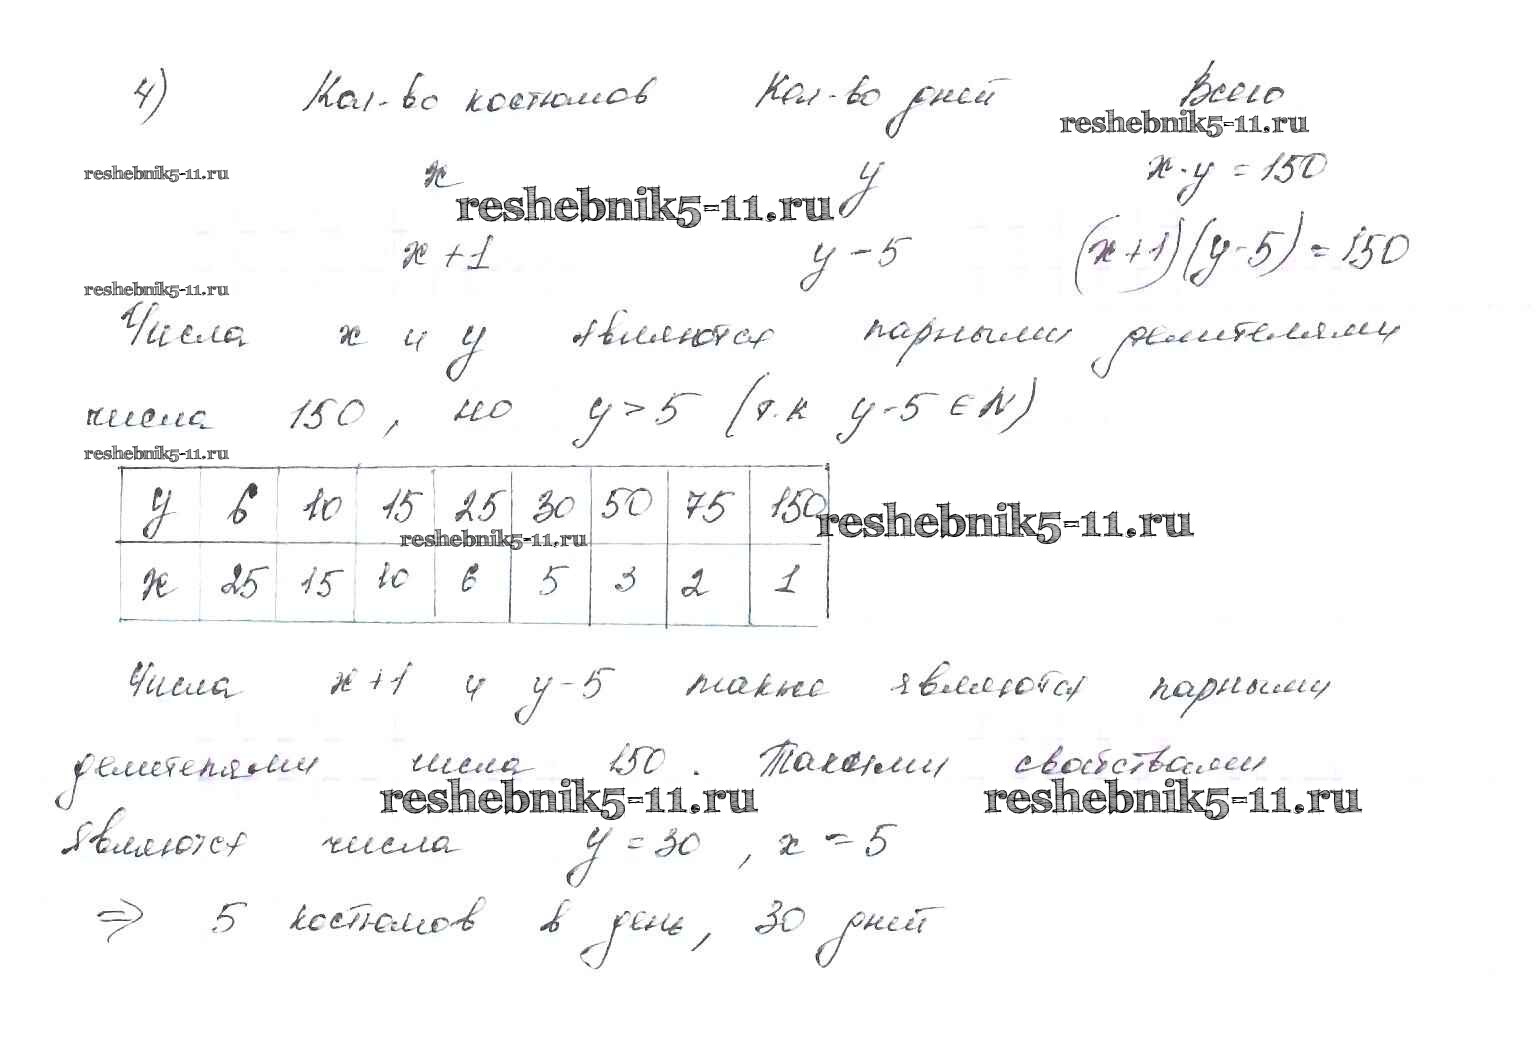 4) Кол-во костюмов Кол-во дней Всего
reshebnik5-11.ru
reshebnik5-11.ru x y x·y = 150
reshebnik5-11.ru
x+1 y-5 (x+1)(y-5) = 150
reshebnik5-11.ru
Числа x и y являются парными делителями
числа 150, но y > 5 (т.к y-5 ∈ N)
reshebnik5-11.ru
y 6 10 15 25 30 50 75 150
reshebnik5-11.ru
reshebnik5-11.ru
x 25 15 10 6 5 3 2 1
Числа x+1 и y-5 также являются парными
делителями числа 150. Такими свойствами
reshebnik5-11.ru reshebnik5-11.ru
являются числа y = 30, x = 5
⇒ 5 костюмов в день, 30 дней